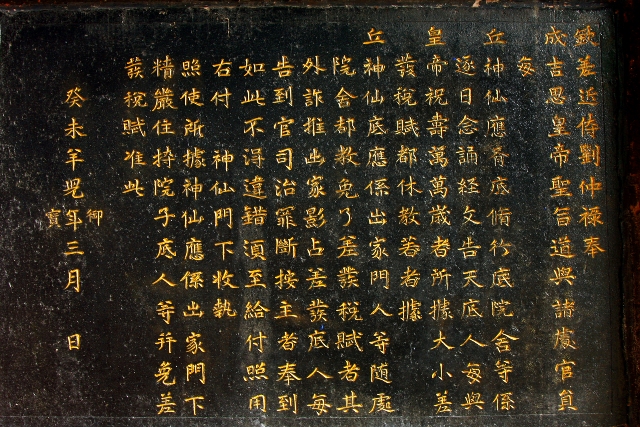 欽差近侍劉仲祿奉
成吉思皇帝聖旨道與諸處官員
每
丘神仙應有底脩行底院舍等係
逐日念誦經文告天底人每與
皇帝祝壽萬萬歲者所據大小差
發稅賦都休教著者據
丘神仙底應係出家門人等隨處
院舍都教免了差發稅賦者其
外詐推出家影占差發底人每
告到官司治罪斷按主者奉到
如此不得違錯須至給付照用
右付 神仙門下收執
照使所據神仙應係出家門下
精嚴住持院子底人等并免差
發稅賦准此
御寶
癸未羊兒年三月 日